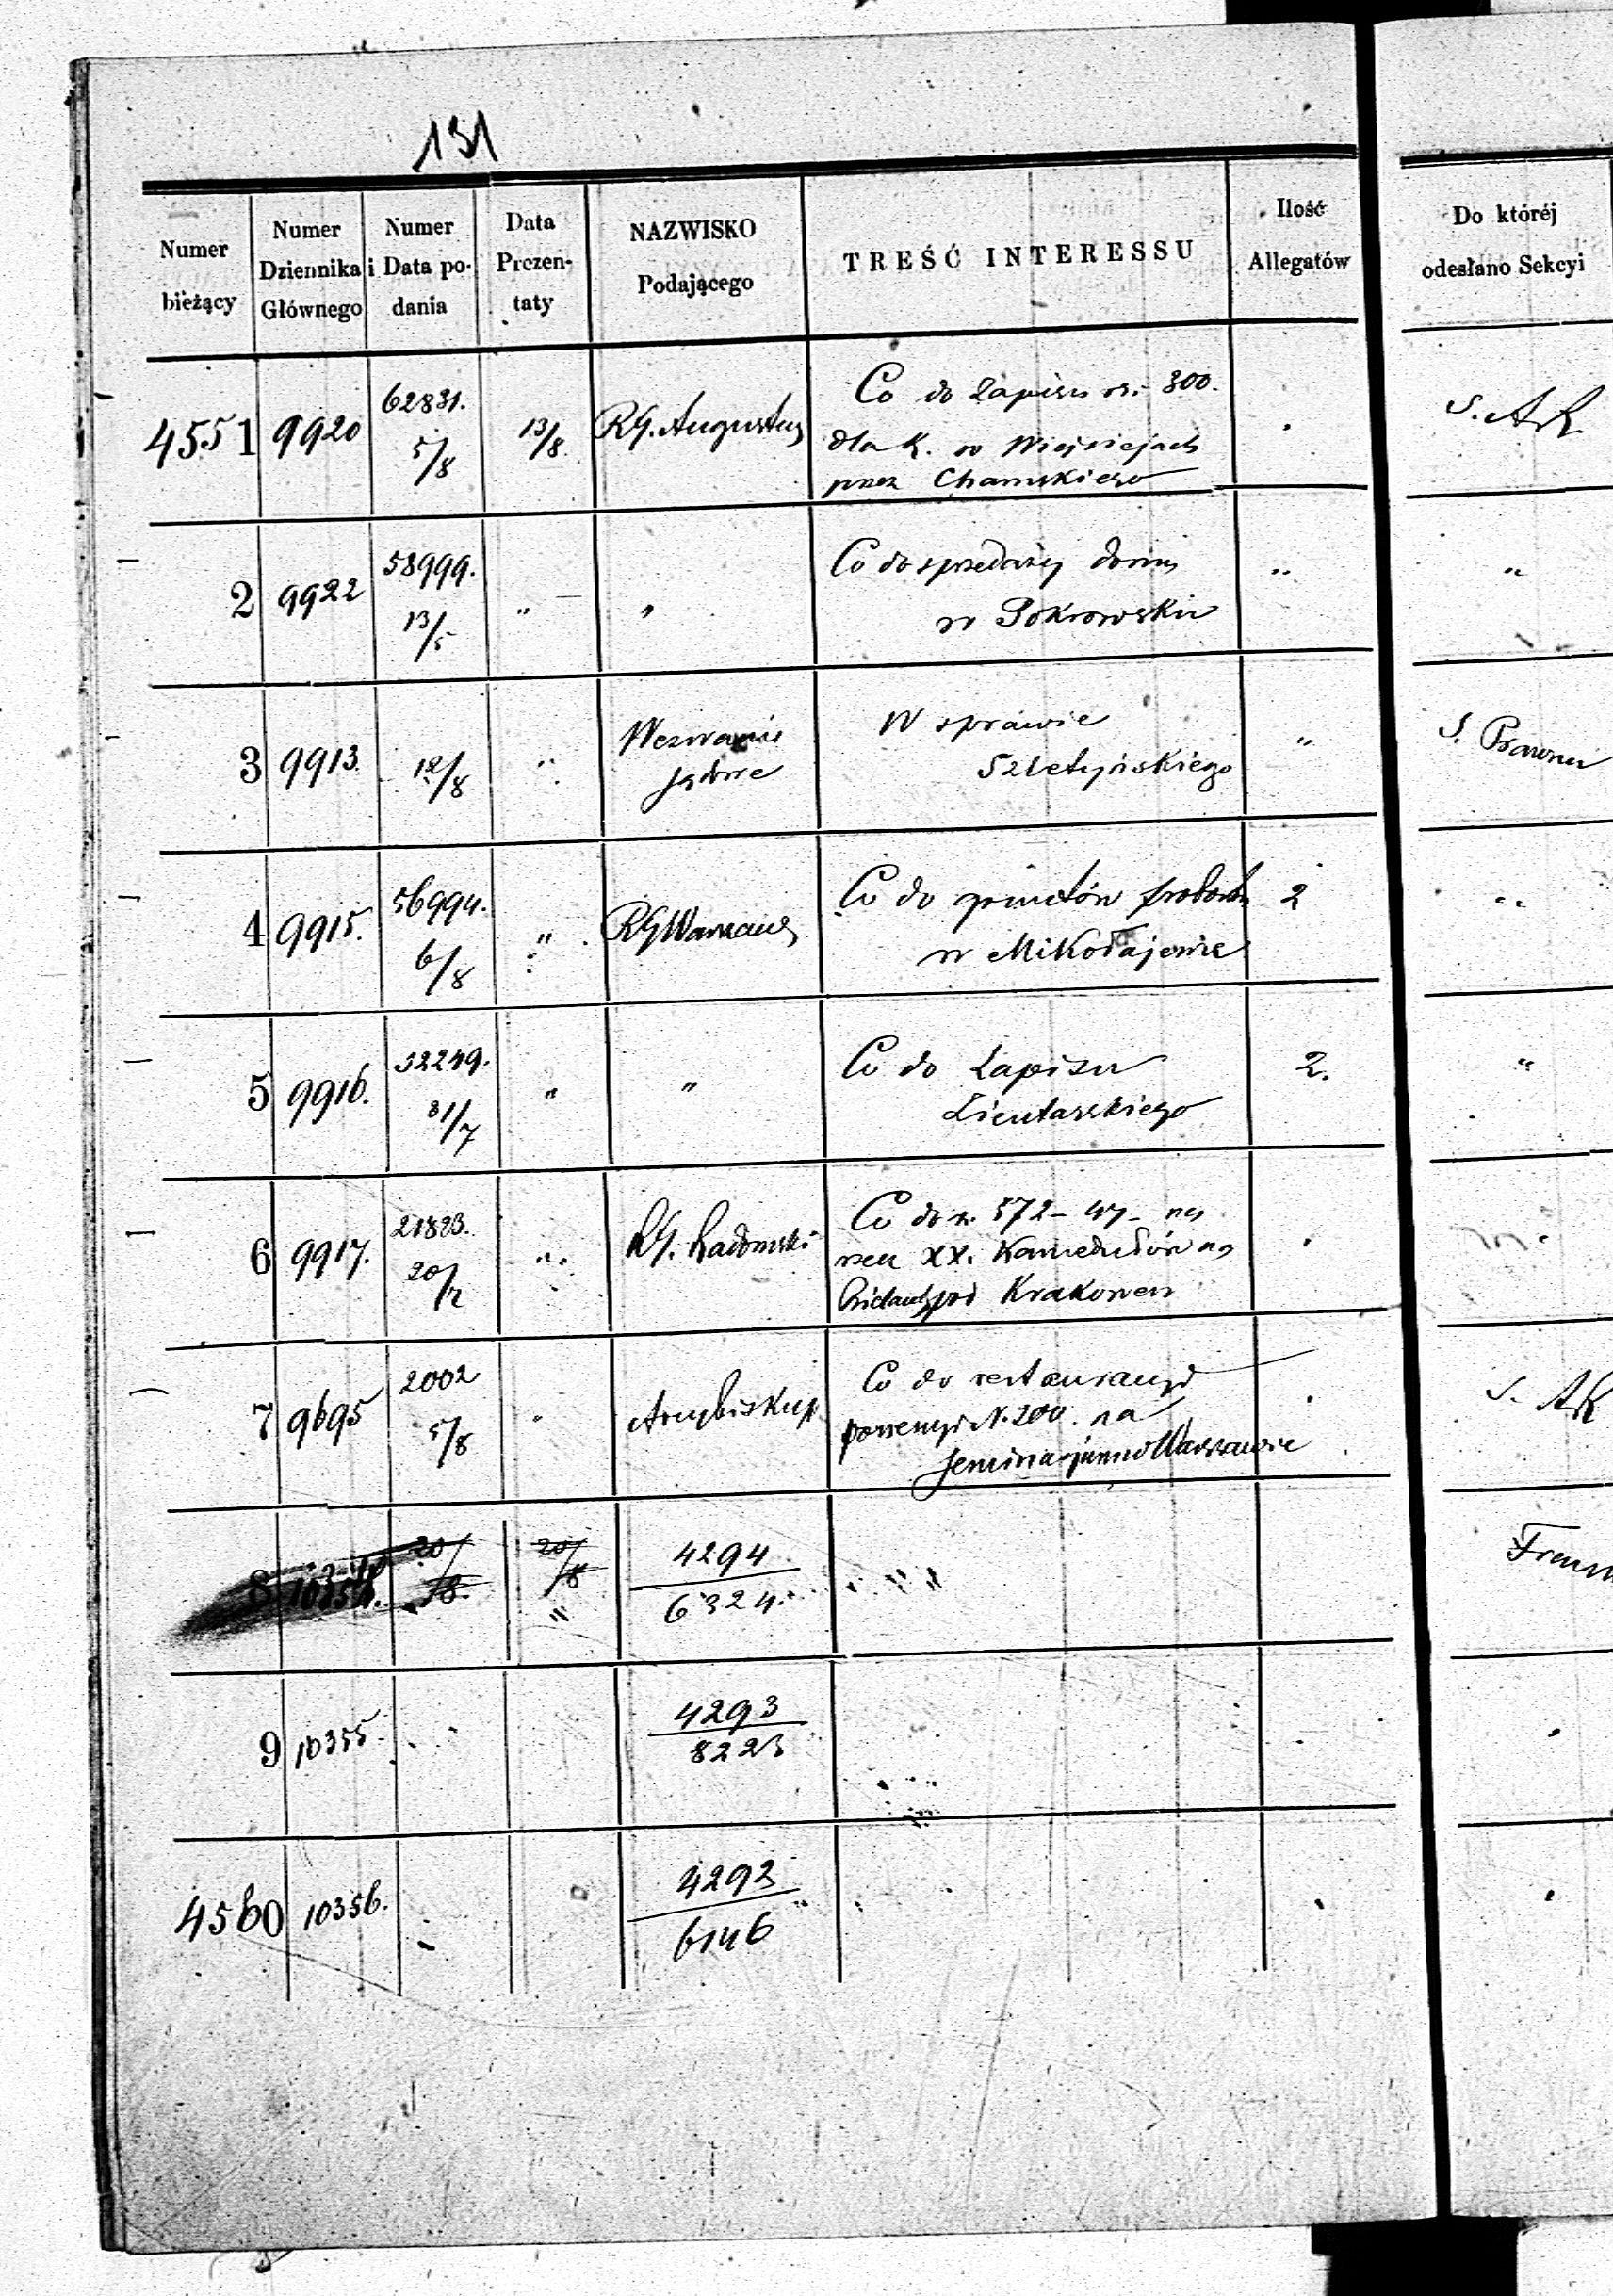 131
Numer bieżący
Numer Dziennika Głównego
Numer i Data podania
Data Prezentaty
NAZWISKO Podającego
TREŚĆ INTERESSU
Ilość Allegatów
Do któréj odesłano Sekcyi
4551 9920 62831. 5/8 13/8 RG. Augustus
Co do Zapisu rs. 300.
dla K. w Wiejsiejach
przez Chamskiego
S. AR
2 9922 58999. 13/5 " "
Co do sprzedaży domu
w Pokrowsku
" "
3 9913. 12/8 "
Wezwanie
sądowe
W sprawie
Szletyńskiego
" S. Prawna
4 9915. 56994. 6/8 " RG Warszaws
Co do gruntów probosz
w Mikołajewie
2 "
5 9916. 52249. 31/7 " "
Co do Zapisu
Zientarskiego
2. "
6 9917. 21823. 20/2 " RG. Radomski
Co do r. 572 - 47 - na
rzecz XX. Kamedułów na
Bielanach pod Krakowem
7 9695 2002 5/8 " Arcybiskup
Co do restauracyi
possesyi N. 200. na
Seminarjum w Warszawie
S. AR
8 10354. 20/8. 20/8 " 4294
6324.
9 10355. 4293
8223
4560 10356. 4292
6146